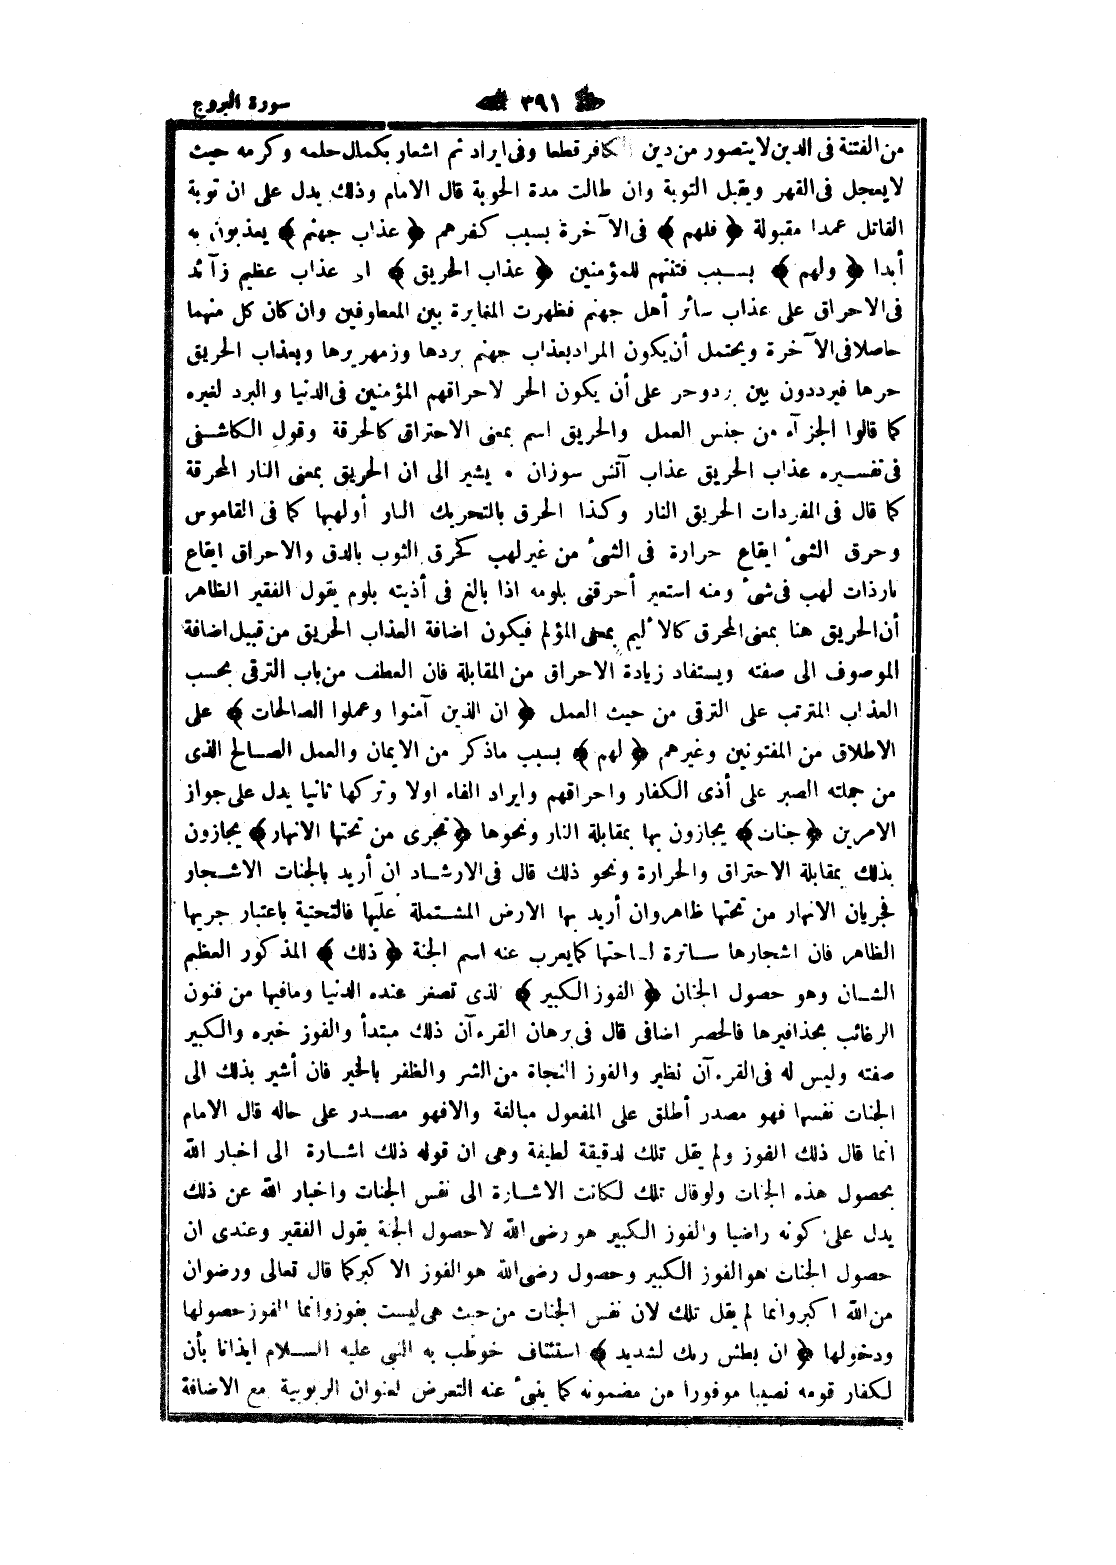 سورة البروج
٣٩١
من الفتنة فى الدين لايتصور من دين الكافر قطعا وفى ايراد ثم اشعار بكمال حلمه وكرمه حيث
لايعجل فى القهر ويقبل التوبة وان طالت مدة الحوبة قال الامام وذلك يدل على ان توبة
القاتل عمدا مقبولة ﴿ فلهم ﴾ فى الآخرة بسبب كفرهم ﴿ عذاب جهنم ﴾ يعذبون به
أبدا ﴿ ولهم ﴾ بسبب فتنتهم للمؤمنين ﴿ عذاب الحريق ﴾ اى عذاب عظيم زآئد
فى الاحراق على عذاب سائر أهل جهنم فظهرت المغايرة بين المعاوفين وان كان كل منهما
حاصلا فى الآخرة ويحتمل أن يكون المراد بعذاب جهنم بردها وزمهريرها وبعذاب الحريق
حرها فيرددون بين بردوحر على أن يكون الحر لاحراقهم المؤمنين فى الدنيا والبرد لغيره
كما قالوا الجزآء من جنس العمل والحريق اسم بمعنى الاحتراق كالحرقة وقول الكاشفى
فى تفسيره عذاب الحريق عذاب آتش سوزان . يشير الى ان الحريق بمعنى النار المحرقة
كما قال فى المفردات الحريق النار وكذا الحرق بالتحريك النار أولهبها كما فى القاموس
وحرق الشئ ايقاع حرارة فى الشئ من غير لهب كحرق الثوب بالدق والاحراق ايقاع
نارذات لهب فى شئ ومنه استعير أحرقنى بلومه اذا بالغ فى أذيته بلوم يقول الفقير الظاهر
أن الحريق هنا بمعنى المحرق كالأليم بمعنى المؤلم فيكون اضافة العذاب الحريق من قبيل اضافة
الموصوف الى صفته ويستفاد زيادة الاحراق من المقابلة فان العطف من باب الترقى بحسب
العذاب المترتب على الترقى من حيث العمل ﴿ ان الذين آمنوا وعملوا الصالحات ﴾ على
الاطلاق من المفتونين وغيرهم ﴿ لهم ﴾ بسبب ماذكر من الايمان والعمل الصالح الذى
من جملته الصبر على أذى الكفار واحراقهم وايراد الفاء اولا وتركها ثانيا يدل على جواز
الامرين ﴿ جنات ﴾ يجازون بها بمقابلة النار ونحوها ﴿ تجرى من تحتها الانهار ﴾ يجازون
بذلك بمقابلة الاحتراق والحرارة ونحو ذلك قال فى الارشاد ان أريد بالجنات الاشجار
فجريان الانهار من تحتها ظاهر وان أريد بها الارض المشتملة عليها فالتحتية باعتبار جريها
الظاهر فان اشجارها ساترة لساحتها كما يعرب عنه اسم الجنة ﴿ ذلك ﴾ المذكور العظيم
الشان وهو حصول الجنان ﴿ الفوز الكبير ﴾ لذى تصغر عنده الدنيا ومافيها من فنون
الرغائب بحذافيرها فالحصر اضافى قال فى برهان القرءآن ذلك مبتدأ والفوز خبره والكبير
صفته وليس له فى القرءآن نظير والفوز النجاة من الشر والظفر بالخير فان أشير بذلك الى
الجنات نفسها فهو مصدر أطلق على المفعول مبالغة والافهو مصدر على حاله قال الامام
انما قال ذلك الفوز ولم يقل تلك لدقيقة لطيفة وهى ان قوله ذلك اشارة الى اخبار الله
بحصول هذه الجنات ولوقال تلك لكانت الاشارة الى نفس الجنات واخبار الله عن ذلك
يدل على كونه راضيا والفوز الكبير هو رضى الله لاحصول الجنة يقول الفقير وعندى ان
حصول الجنات هو الفوز الكبير وحصول رضى الله هو الفوز الاكبر كما قال تعالى ورضوان
من الله اكبر وانما لم يقل تلك لان نفس الجنات من حيث هى ليست بفوز وانما الفوز حصولها
ودخولها ﴿ ان بطش ربك لشديد ﴾ استئناف خوطب به النبى عليه السلام ايذانا بأن
لكفار قومه نصيبا موفورا من مضمونه كما ينبئ عنه التعرض لعنوان الربوبية مع الاضافة